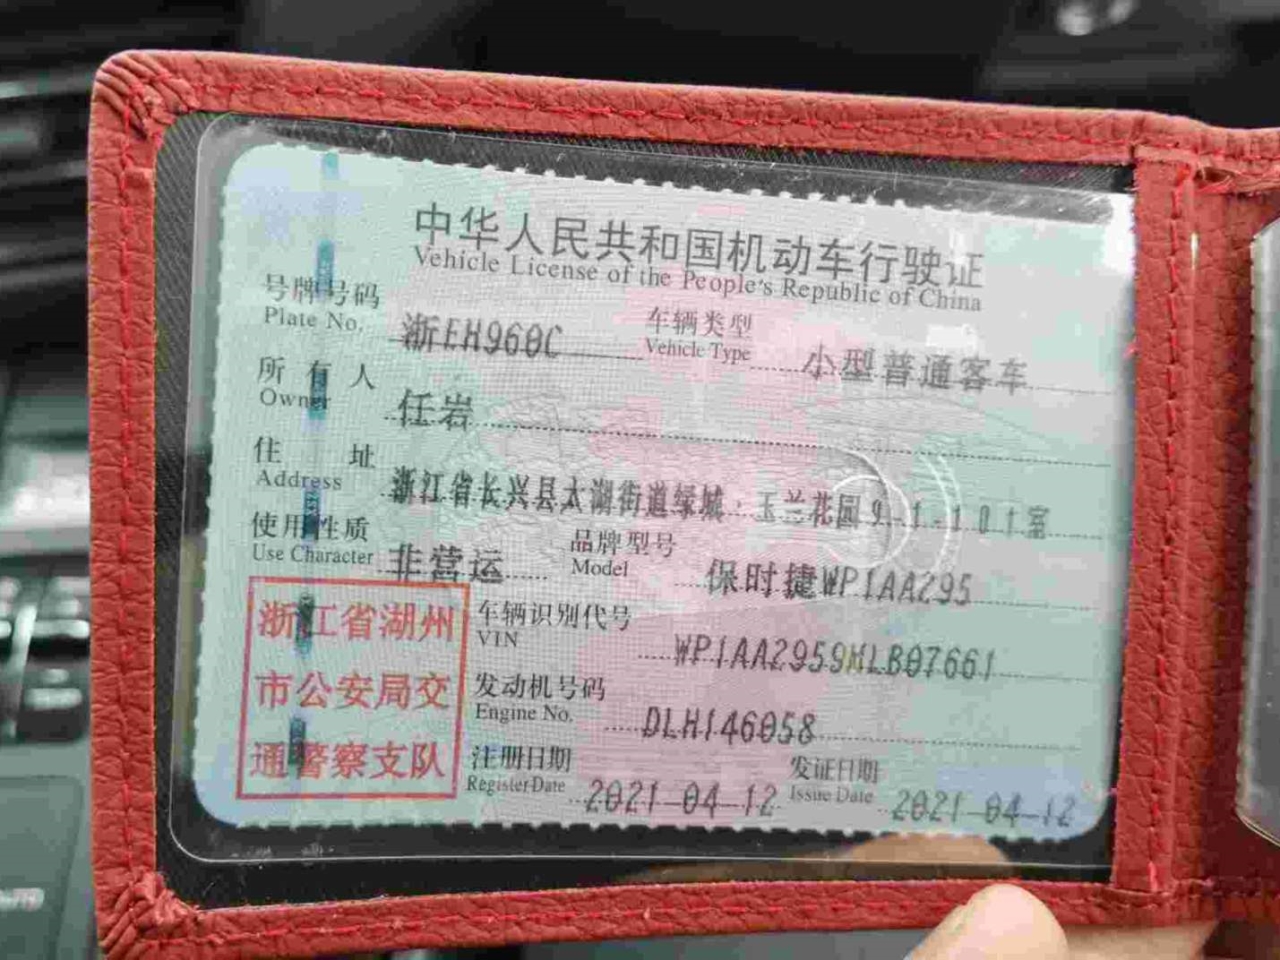 中华人民共和国机动车行驶证
Vehicle License of the People's Republic of China
号牌号码 浙EH960C 车辆类型 小型普通客车
Plate No. Vehicle Type
所有人 任岩
Owner
住址 浙江省长兴县太湖街道绿城·玉兰花园9-1-101室
Address
使用性质 非营运 品牌型号 保时捷WP1AA295
Use Character Model
浙江省湖州
市公安局交
通警察支队
车辆识别代号 WP1AA2959MLB07661
VIN
发动机号码 DLH146058
Engine No.
注册日期 2021-04-12 发证日期 2021-04-12
Register Date Issue Date